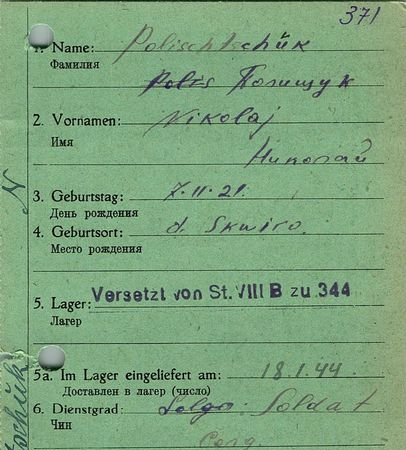 371
1. Name: Polischtschük
Фамилия
Полищук
2. Vornamen: Nikolaj
Имя
Николай
3. Geburtstag: 7.11.21.
День рождения
4. Geburtsort: d. Skwiro.
Место рождения
5. Lager: Versetzt von St. VIII B zu 344
Лагер
5a. Im Lager eingeliefert am: 18.1.44
Доставлен в лагер (число)
6. Dienstgrad: Soldat
Чин